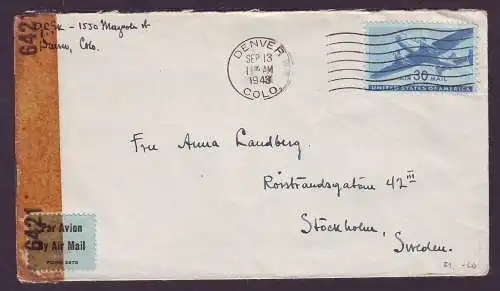 6421
1550 Magnolia St
Denver, Colo.
DENVER
SEP 13
11 AM
1943
COLO.
30
AIR MAIL
UNITED STATES OF AMERICA
Fru Anna Landberg.
Rörstrandsgatan 42 III
Stockholm,
Sweden.
6421
Par Avion
By Air Mail